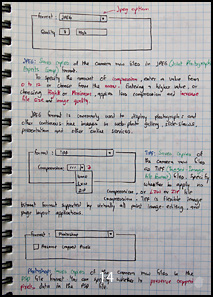 Jpeg option
Format: JPEG
Quality 8 High
JPEG: Saves copies of the camera raw files in JPEG (Joint Photographic
Experts Group) format.
To specify the amount of compression, enter a value from
0 to 12 or choose from the menu. Entering a higher value, or
choosing High or Maximum, applies less compression and increases
file size and image quality.
JPEG format is commonly used to display photographs and
other continuous tone images in web photo gallery, slide-shows,
presentation and other online services.
Format: TIFF
Compression:
None
LZW
ZIP
TIFF: Saves copies
of the camera raw files
as TIFF (Tagged Image
File Format) files. Specify
whether to apply no
Compression, or LZW or ZIP file
Compression. TIFF is flexible image
format supported by virtually all paint, image-editing, and
page layout applications.
Format: Photoshop
Preserve Cropped Pixels
14
Photoshop: Saves copies of the camera raw files in the
PSD file format. You can specify whether to preserve cropped
pixels data in the PSD file.